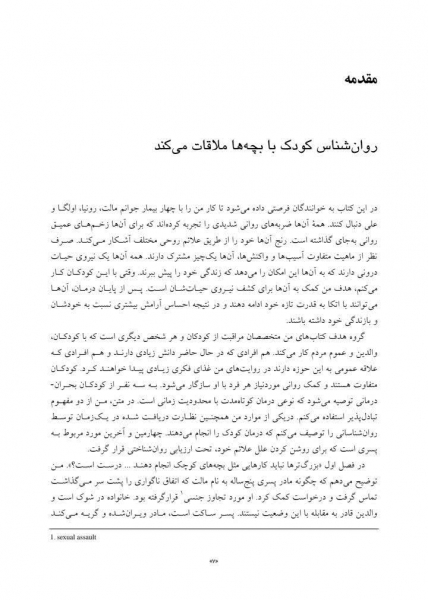 مقدمه
روان‌شناس کودک با بچه‌ها ملاقات می‌کند
در این کتاب به خوانندگان فرصتی داده می‌شود تا کار من را با چهار بیمار جوانم مالت، رونیا، اولگا و
علی دنبال کنند. همهٔ آن‌ها ضربه‌های روانی شدیدی را تجربه کرده‌اند که برای آن‌ها زخم‌های عمیق
روانی به‌جای گذاشته است. رنج آن‌ها خود را از طریق علائم روحی مختلف آشکار می‌کند. صرف
نظر از ماهیت متفاوت آسیب‌ها و واکنش‌ها، آن‌ها یک‌چیز مشترک دارند. همه آن‌ها یک نیروی حیات
درونی دارند که به آن‌ها این امکان را می‌دهد که زندگی خود را پیش ببرند. وقتی با این کودکان کار
می‌کنم، هدف من کمک به آن‌ها برای کشف نیروی حیات‌شان است. پس از پایان درمان، آن‌ها
می‌توانند با اتکا به قدرت تازه خود ادامه دهند و در نتیجه احساس آرامش بیشتری نسبت به خودشان
و بازندگی خود داشته باشند.
گروه هدف کتاب‌های من متخصصان مراقبت از کودکان و هر شخص دیگری است که با کودکان،
والدین و عموم مردم کار می‌کند. هم افرادی که در حال حاضر دانش زیادی دارند و هم افرادی که
علاقه عمومی به این حوزه دارند در روایت‌های من غذای فکری زیادی پیدا خواهند کرد. کودکان
متفاوت هستند و کمک روانی موردنیاز هر فرد با او سازگار می‌شود. به سه نفر از کودکان بحران-
درمانی توصیه می‌شود که نوعی درمان کوتاه‌مدت با محدودیت زمانی است. در متن، من از دو مفهوم
تبادل‌پذیر استفاده می‌کنم. دریکی از موارد من همچنین نظارت دریافت شده در یک‌زمان توسط
روان‌شناسانی را توصیف می‌کنم که درمان کودک را انجام می‌دهند. چهارمین و آخرین مورد مربوط به
پسری است که برای روشن کردن علل علائم خود، تحت ارزیابی روان‌شناختی قرار گرفت.
در فصل اول «بزرگ‌ترها نباید کارهایی مثل بچه‌های کوچک انجام دهند ... درست است؟». من
توضیح می‌دهم که چگونه مادر پسری پنج‌ساله به نام مالت که اتفاق ناگواری را پشت سر می‌گذاشت
تماس گرفت و درخواست کمک کرد. او مورد تجاوز جنسی۱ قرارگرفته بود. خانواده در شوک است و
والدین قادر به مقابله با این وضعیت نیستند. پسر ساکت است، مادر ویران‌شده و گریه می‌کند
1. sexual assault
«۷»